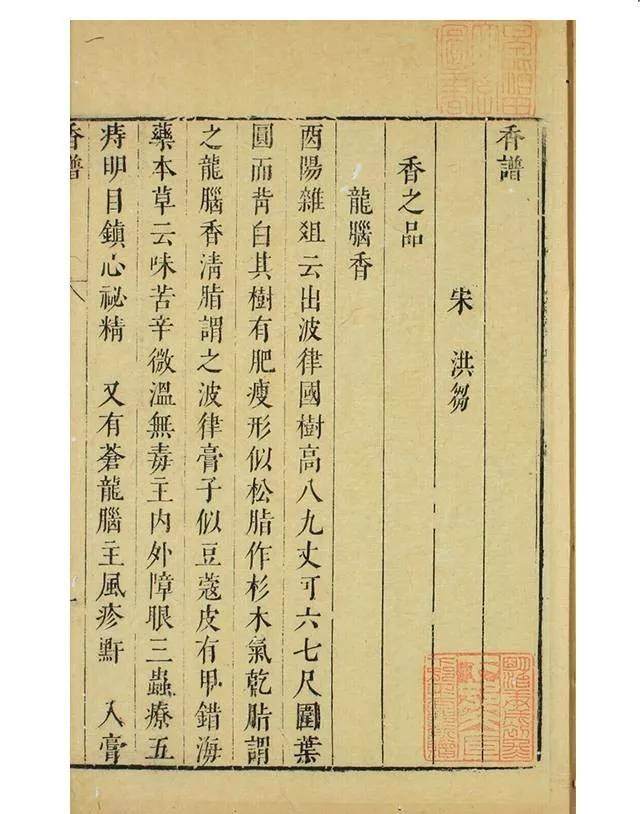 香譜
宋 洪芻
香之品
龍腦香
酉陽雜俎云出波律國樹高八九丈可六七尺圍葉
圓而背白其樹有肥瘦形似松脂作杉木氣乾脂謂
之龍腦香清脂謂之波律膏子似豆蔻皮有甲錯海
藥本草云味苦辛微溫無毒主內外障眼三蟲療五
痔明目鎮心祕精 又有蒼龍腦主風疹䵟 入膏
香譜
一